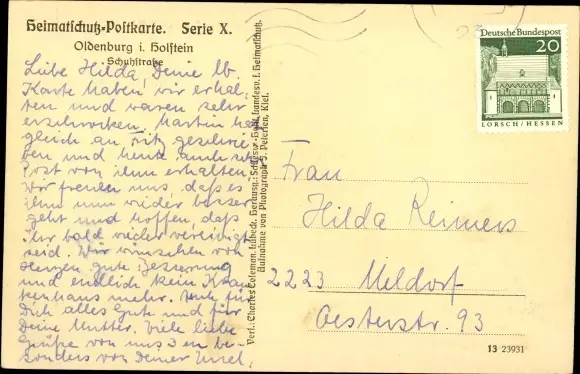 Heimatschutz-Postkarte. Serie X.
Oldenburg i. Holstein
Schuhstraße
Liebe Hilda, Deine lb.
Karte haben wir erhal-
ten und waren sehr
erschrocken. Martin ha
gleich an Fritz geschrie-
ben und heute auch
Post von ihm erhalten.
Wir freuen uns, daß es
ihm nun wieder besser
geht und hoffen, daß
ihr bald wieder vereinigt
seid. Wir wünschen von
Herzen gute Besserung
und endlich kein Kran
kenhaus mehr. für
Dich alles Gute und für
Deine Mutter. Viele liebe
Grüße von uns 3 en be-
sonders von Deiner
Verl.: Charles Coleman, Lübeck. Herausg.: Schlesw.-Holst. Landesv. f. Heimatschutz.
Aufnahme von Photograph J. Petersen, Kiel.
Deutsche Bundespost
20
LORSCH/HESSEN
Frau
Hilda Reimers
2223 Meldorf
Oesterstr. 93
13 23931